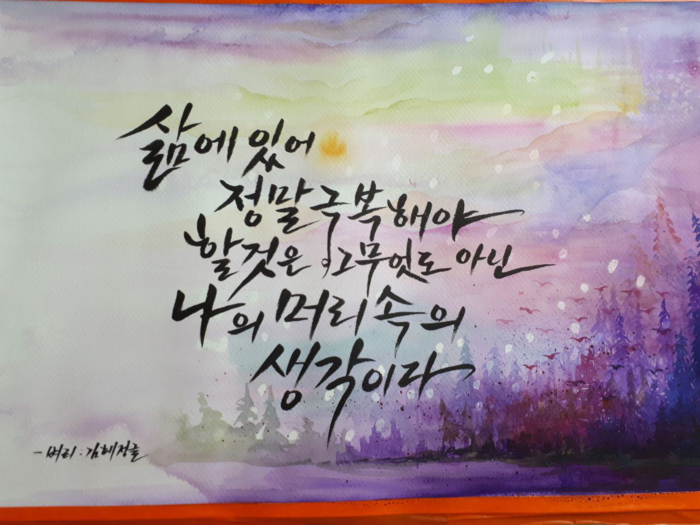 삶에 있어
정말 극복해야
할것은 그 무엇도 아닌
나의 머리속의
생각이다
- 벼리. 김혜정